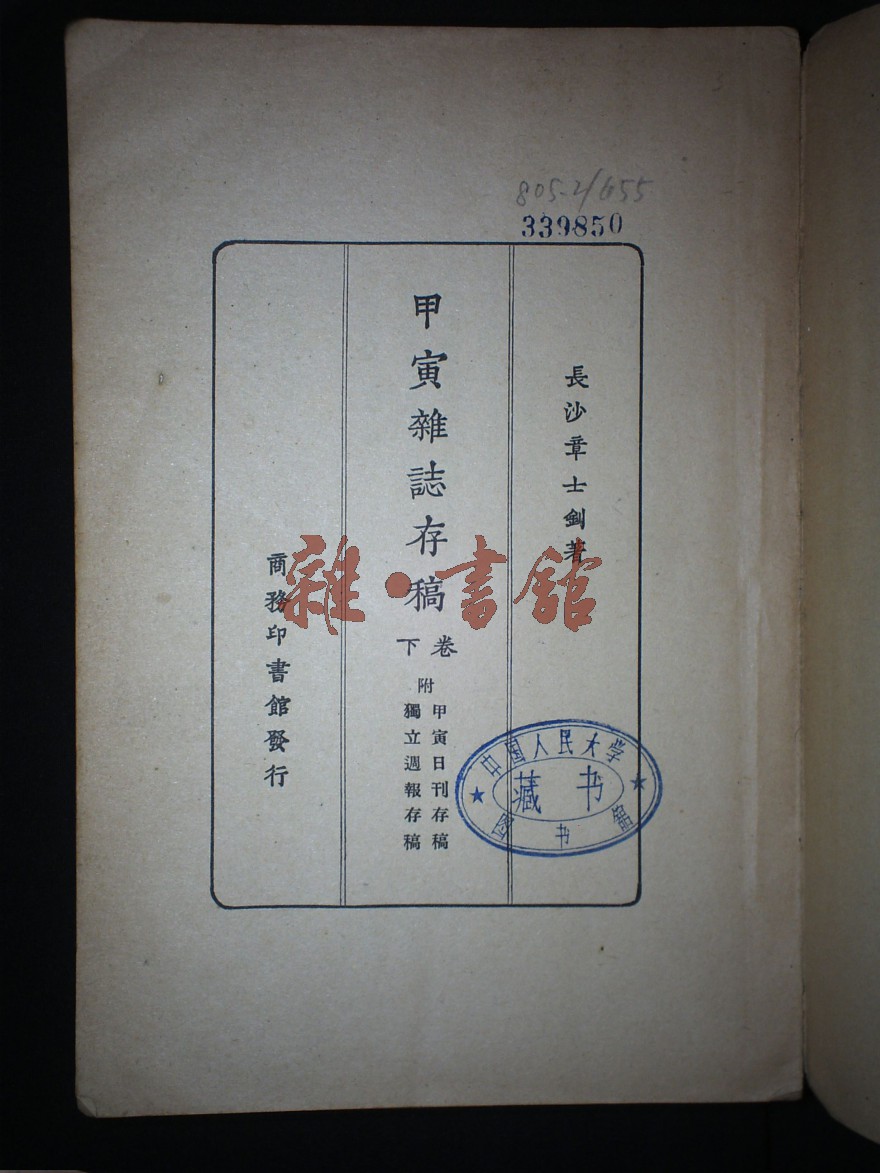 805-2/655
339850
長沙章士釗著
甲寅雜誌存稿
卷下
附
甲寅日刊存稿
獨立週報存稿
商務印書館發行
雜·書館
中国人民大学
藏书
图书馆